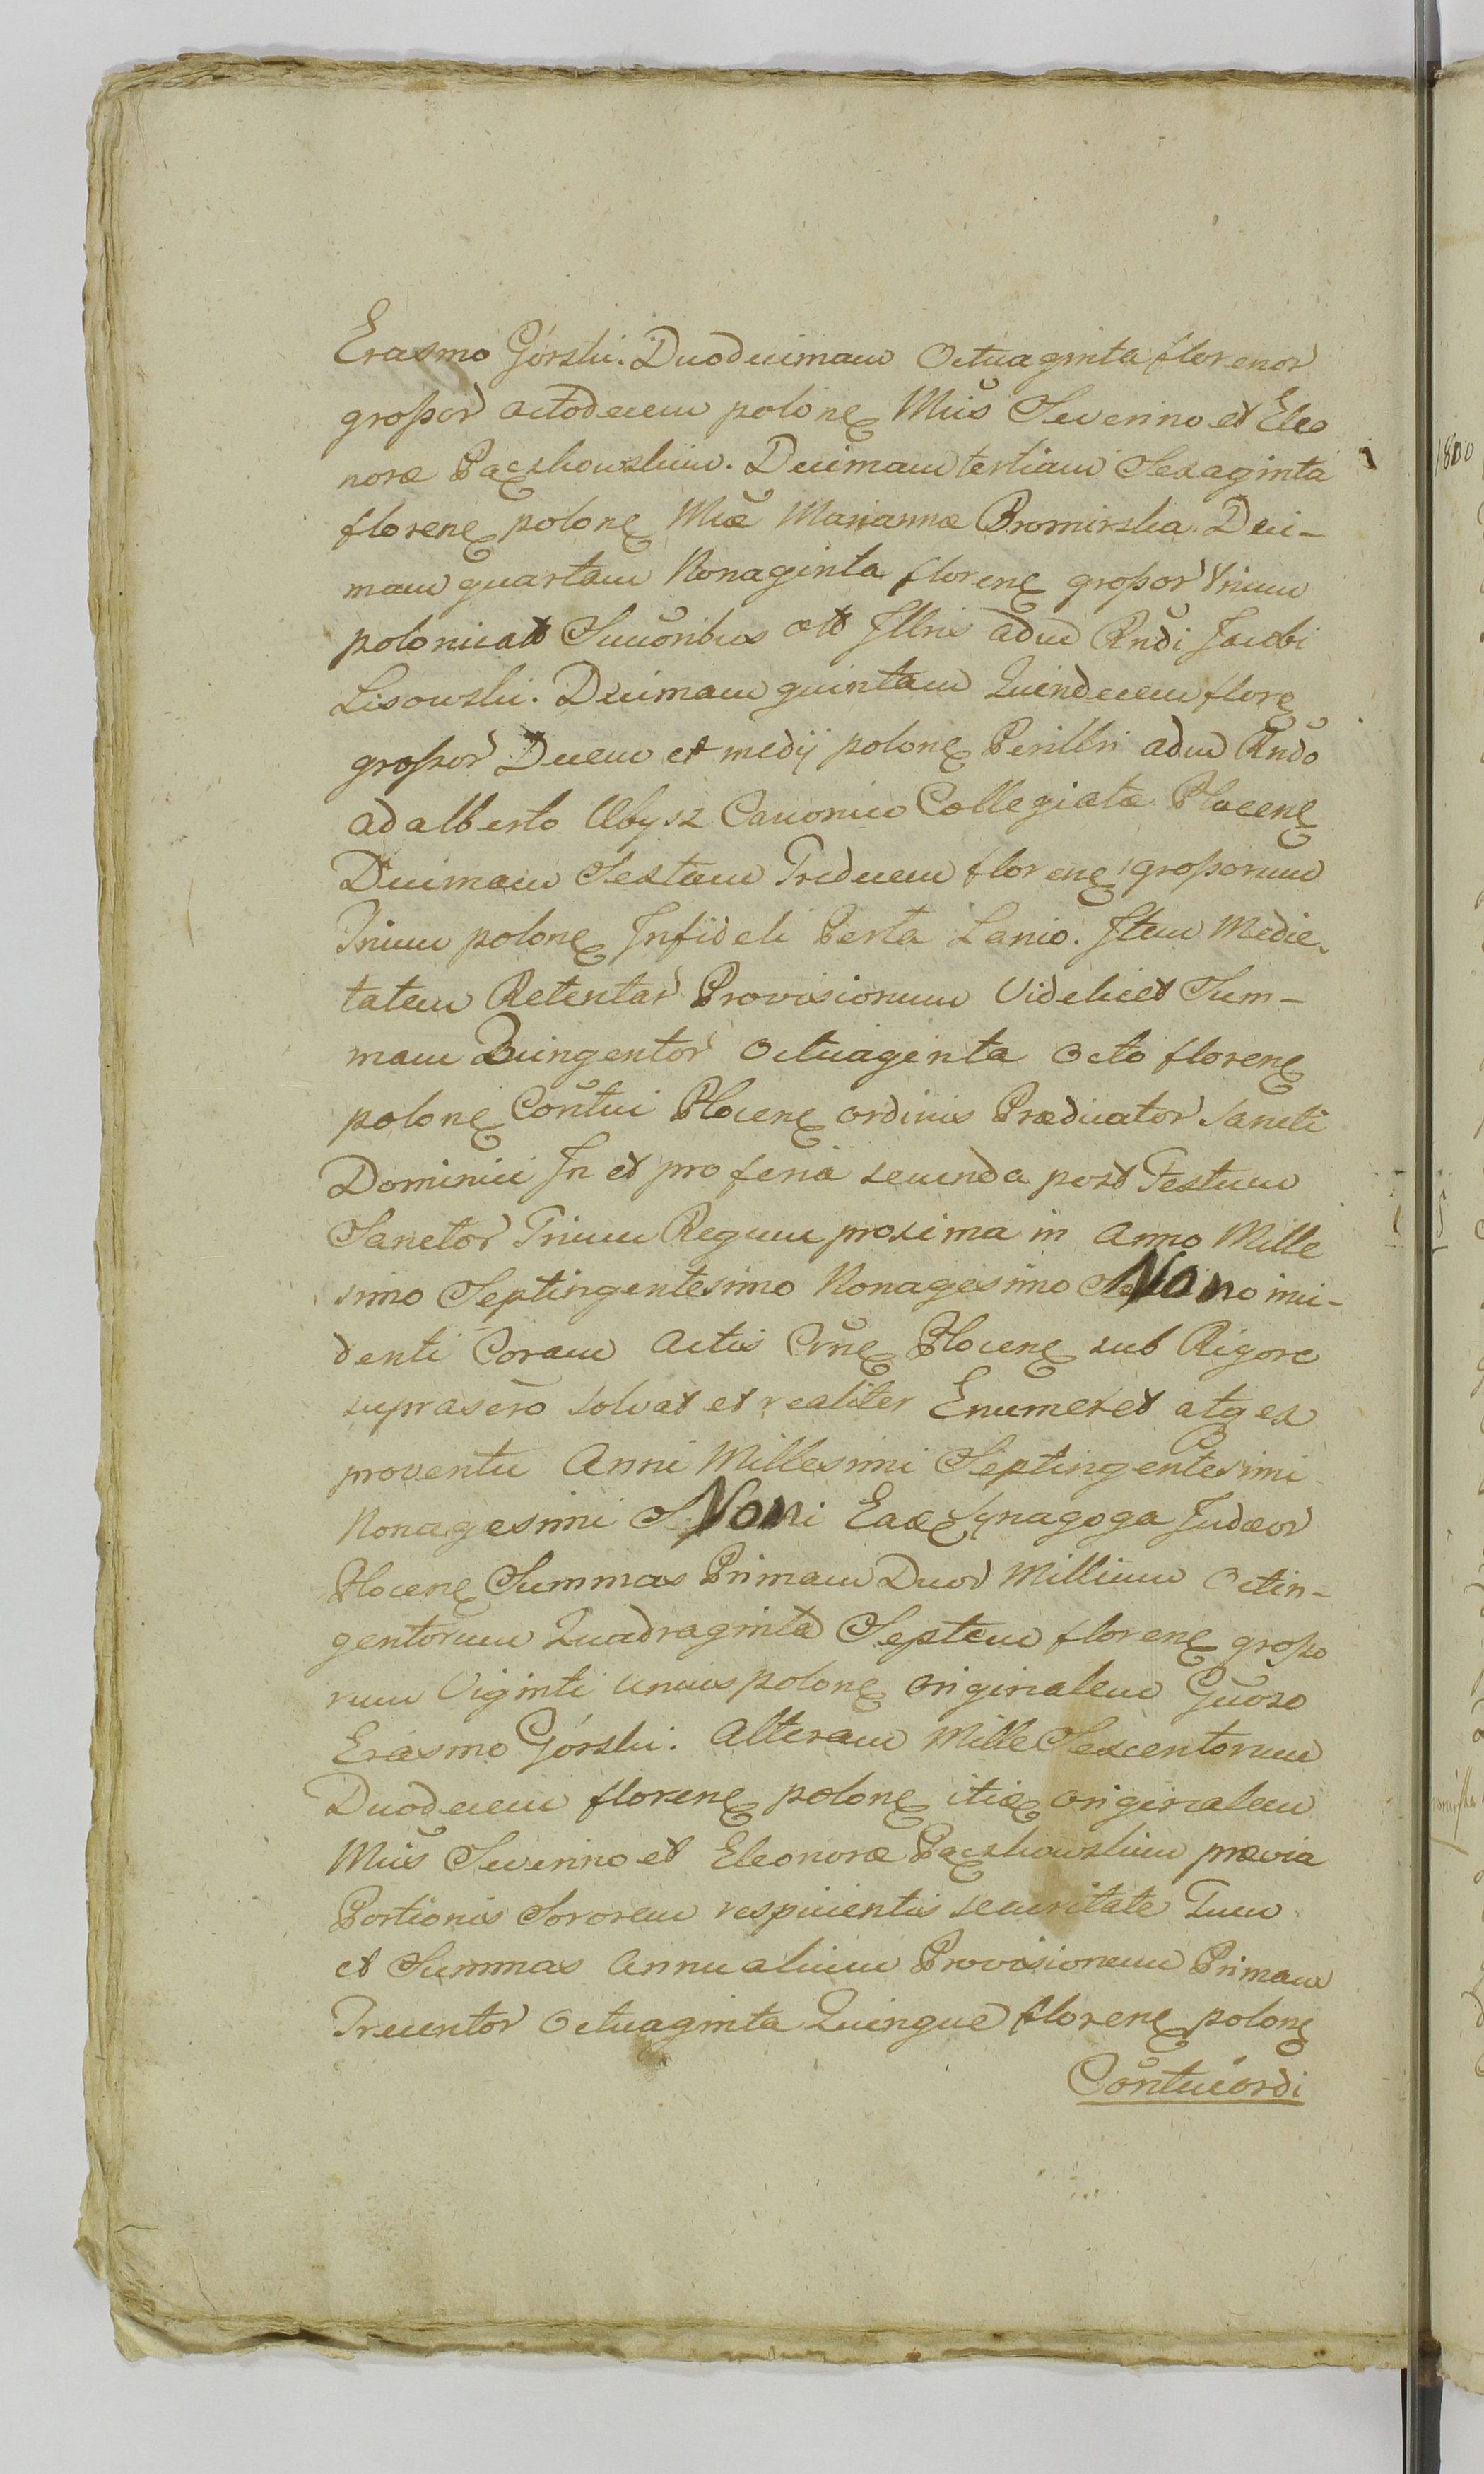 Erasmo Górski. Duodecimam Octuaginta florenor
grossor octodecem polone Mcis Severino et Eleo
noræ Paczkowskim. Decimam tertiam Sexaginta
florene polone Mcæ Mariannæ Bromirska. Deci-
mam quartam Nonaginta florene grossor trium
polonicat Succoribus olt Illris adm Rndi Jacobi
Lisowski. Decimam quintam Quindecem flore
grossor Decem et medij polone Perillri adm Rndo
adalberto Abysz Canonico Collegiatæ Plocene
Decimam Sextam Tredecem florene grossorum
Trium polone Infideli Perla Lanio. Item Medie-
tatem Retentar Provisionum Videlicet Sum-
mam Quingentor Octuaginta Octo florene
polone Contui Plocene ordinis Prædicator Sancti
Dominici In et pro feria secunda post Festum
Sanctor Trium Regum proxima in Anno Mille
simo Septingentesimo Nonagesimo Nono inci-
denti Coram Actis Crne Plocene sub Rigore
suprascro solvat et realiter Enumeret atq ex
proventu Anni Millesimi Septingentesimi
Nonagesimi Noni Eaq Synagoga Judæor
Plocene Summas Primam Duor Millium Octin-
gentorum Quadraginta Septem florene grosso
rum Viginti unius polone originalem Gnoso
Erasmo Górski. Alteram Mille Sexcentorum
Duodecem florene polone itiq originalem
Mcis Severino et Eleonoræ Paczkowskim prævia
Portionis Sororem respicientis securitate Tum
et Summas Annualium Provisionum Primam
Trecentor Octuaginta Quinque florene polone
Contui ordi
1800